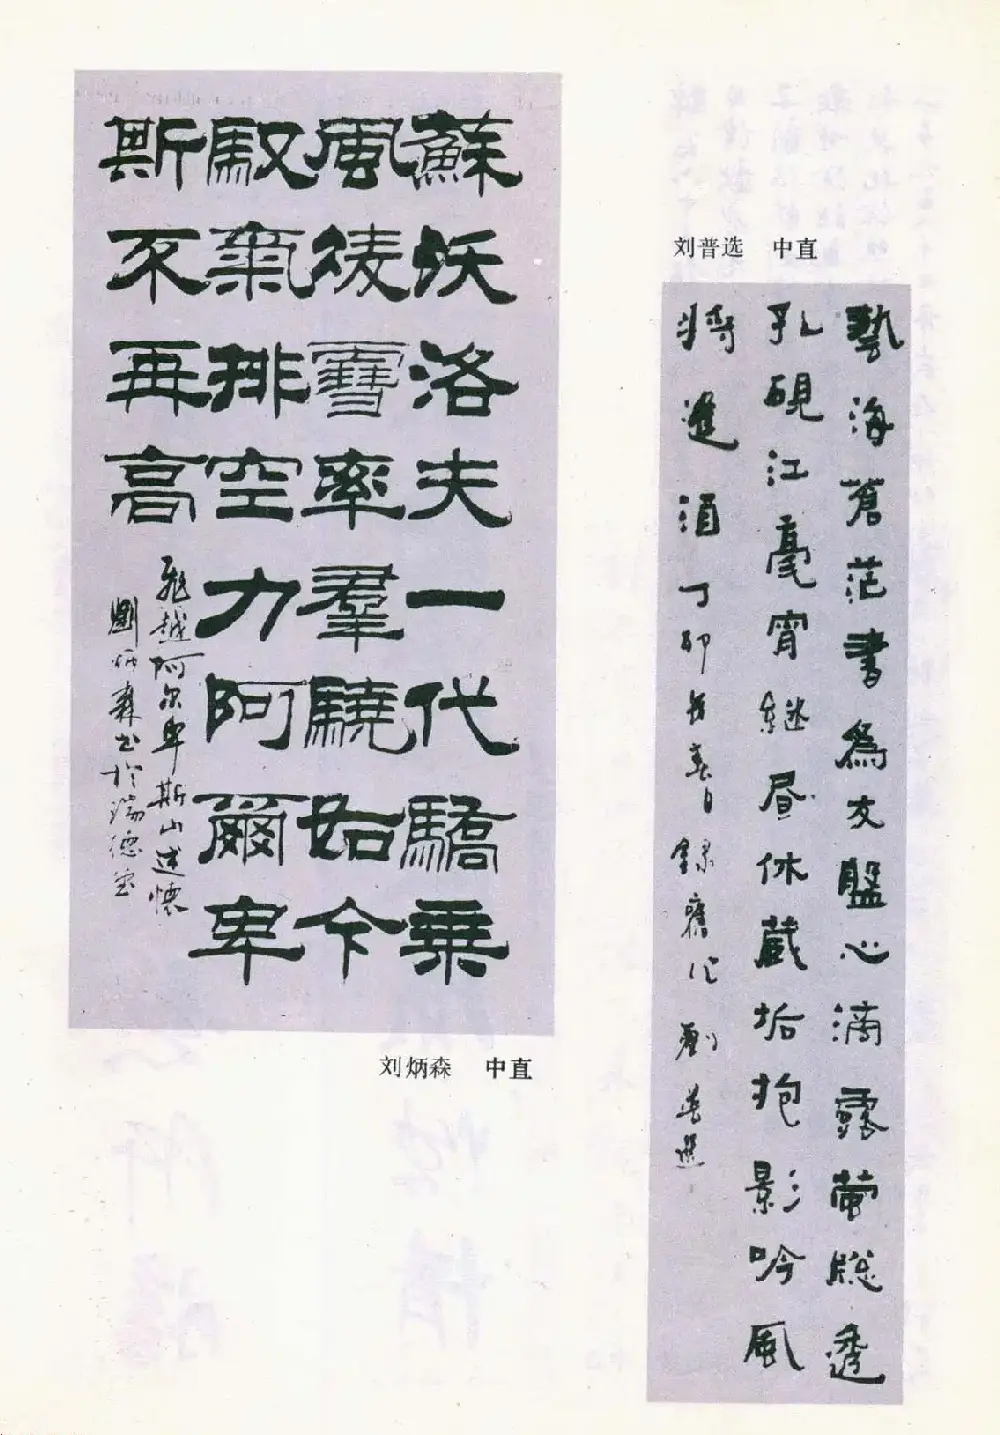 刘普选 中直
藝海蒼茫書為友盤心滴露螢牕透
孔硯江毫宵继昼休蔵垢抱影吟風
將進酒 丁卯春日錄舊作 劉普選
蘇沃洛夫一代驕乘
風凌雪率羣驍如今
馭氣排空力阿爾卑
斯不再高
飛越阿尔卑斯山述懷
劉炳森書於瑞德
刘炳森 中直